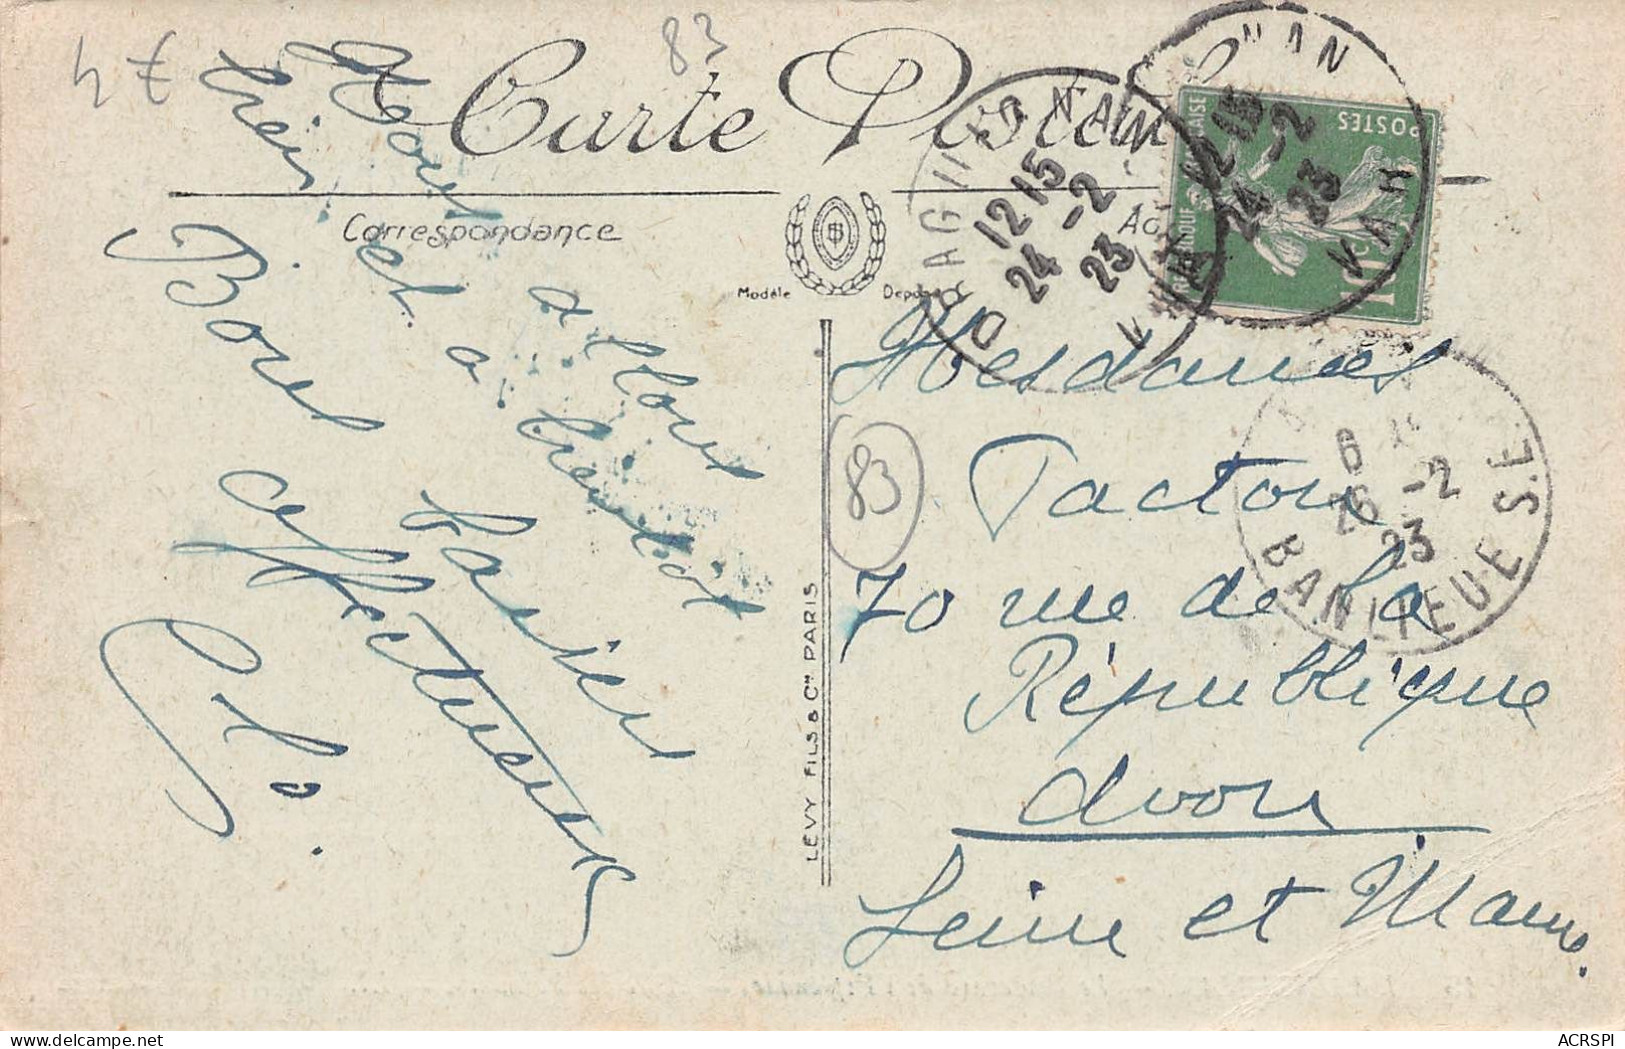 4 €
83
Carte Postale
Correspondance
Modèle
Déposé
Nous allons
bien et à bientôt
Bons baisers
affectueux
LEVY FILS & Cie PARIS
DRAGUIGNAN
12 15
24 -2
23
VAR
12 15
24 -2
23
VAR
POSTES
10c
Mesdames
Tacton
83
70 rue de la
République
Avon
Seine et Marne.
6
26 -2
23
BANLIEUE S.E
ACRSPI